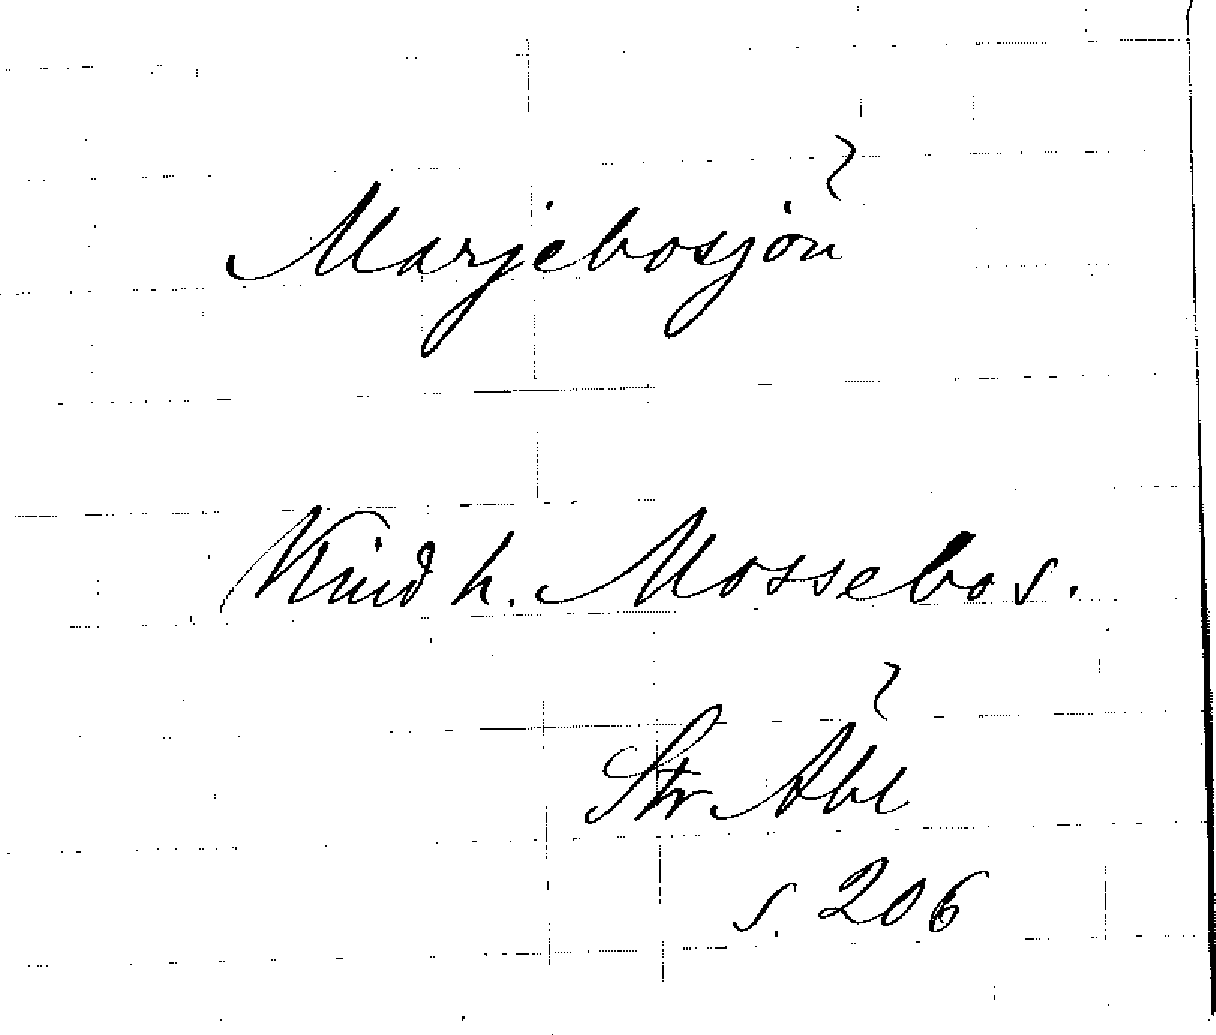 Marjebosjön
Kind h. Mossebo s.
Str Åbl
s. 206